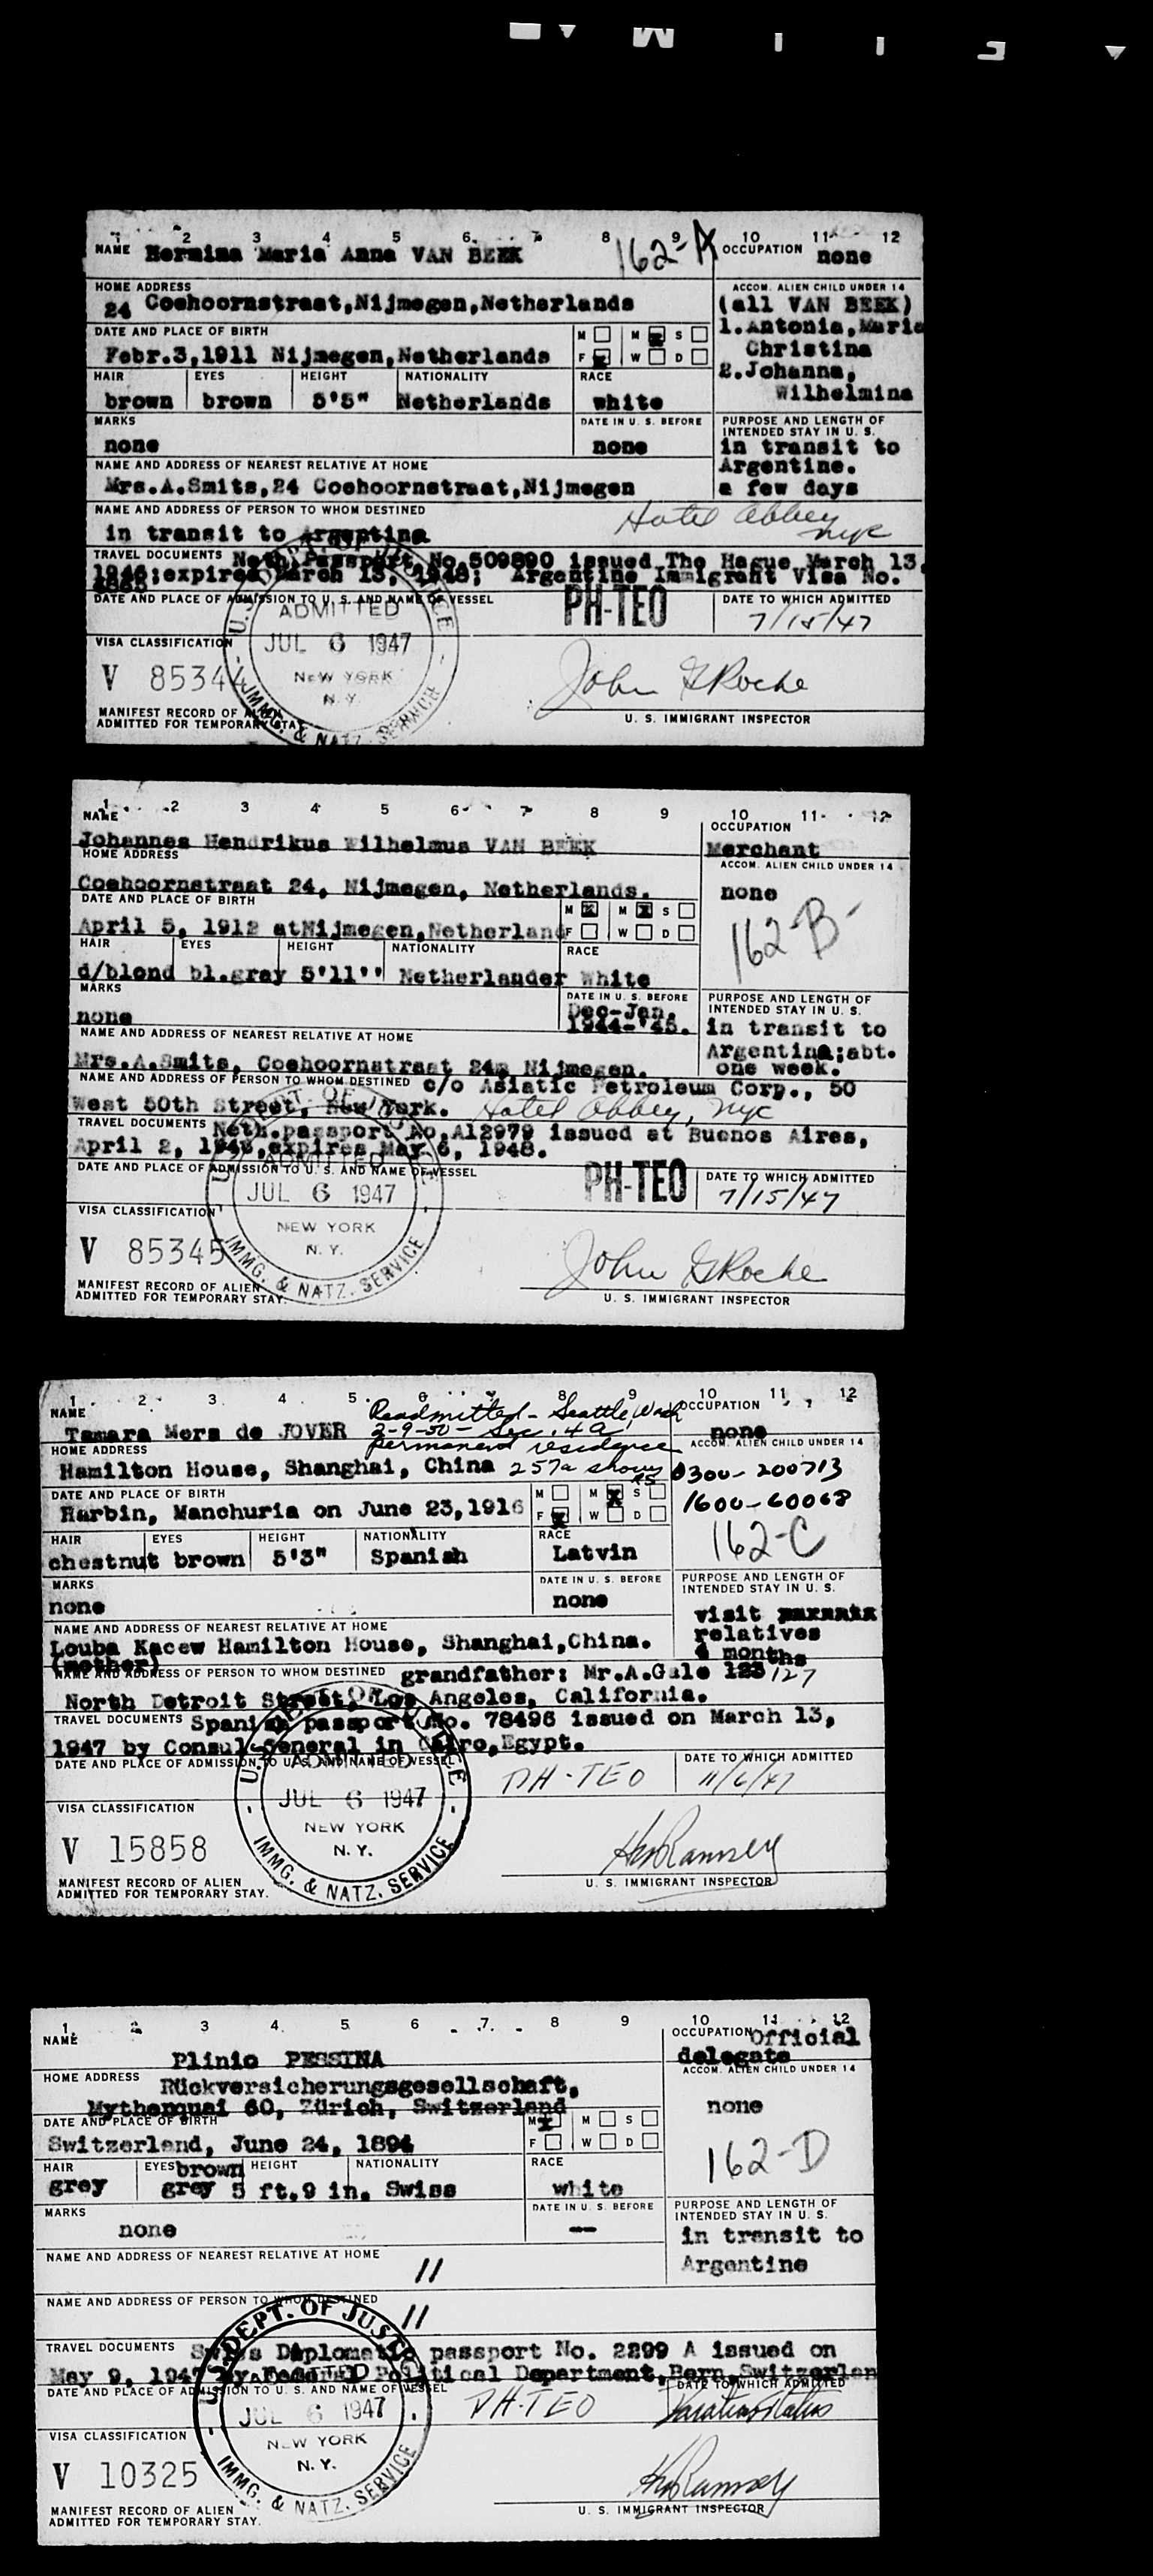 1 2 3 4 5 6 7 8 9 10 11 12
NAME Hermina Maria Anna VAN BEEK 162-A OCCUPATION none
HOME ADDRESS
24 Coehoornstraat, Nijmegen, Netherlands
ACCOM. ALIEN CHILD UNDER 14
(all VAN BEEK)
1. Antonia, Maria
Christina
2. Johanna,
Wilhelmina
DATE AND PLACE OF BIRTH M M S
Febr. 3, 1911 Nijmegen, Netherlands F W D
HAIR EYES HEIGHT NATIONALITY RACE
brown brown 5'5" Netherlands white
MARKS DATE IN U. S. BEFORE
none none
PURPOSE AND LENGTH OF
INTENDED STAY IN U. S.
in transit to
Argentine.
a few days
NAME AND ADDRESS OF NEAREST RELATIVE AT HOME
Mrs. A. Smits, 24 Coehoornstraat, Nijmegen
NAME AND ADDRESS OF PERSON TO WHOM DESTINED
in transit to Argentina Hotel Abbey
nyc
TRAVEL DOCUMENTS Neth. Passport No. 509890 issued The Hague March 13,
1946; expires March 13, 1948; Argentine Immigrant Visa No.
DATE AND PLACE OF ADMISSION TO U. S. AND NAME OF VESSEL PH-TEO DATE TO WHICH ADMITTED
7/15/47
ADMITTED
JUL 6 1947
NEW YORK
N. Y.
IMMG. & NATZ. SERVICE
VISA CLASSIFICATION
V 85344
John G Roche
U. S. IMMIGRANT INSPECTOR
MANIFEST RECORD OF ALIEN
ADMITTED FOR TEMPORARY STAY.
1 2 3 4 5 6 7 8 9 10 11 12
NAME OCCUPATION
Johannes Hendrikus Wilhelmus VAN BEEK Merchant
HOME ADDRESS ACCOM. ALIEN CHILD UNDER 14
Coehoornstraat 24, Nijmegen, Netherlands. none
162-B
DATE AND PLACE OF BIRTH M M S
April 5, 1912 at Nijmegen, Netherland F W D
HAIR EYES HEIGHT NATIONALITY RACE
d/blond bl.gray 5'11'' Netherlander White
MARKS DATE IN U. S. BEFORE
none Dec-Jan.
1944-'45.
PURPOSE AND LENGTH OF
INTENDED STAY IN U. S.
in transit to
Argentina; abt.
one week.
NAME AND ADDRESS OF NEAREST RELATIVE AT HOME
Mrs. A. Smits, Coehoornstraat 24, Nijmegen.
NAME AND ADDRESS OF PERSON TO WHOM DESTINED c/o Asiatic Petroleum Corp., 50
West 50th Street, New York. Hotel Abbey, nyc
TRAVEL DOCUMENTS Neth. passport No. A12979 issued at Buenos Aires,
April 2, 1946, expires May 6, 1948.
DATE AND PLACE OF ADMISSION TO U. S. AND NAME OF VESSEL PH-TEO DATE TO WHICH ADMITTED
7/15/47
ADMITTED
JUL 6 1947
NEW YORK
N. Y.
IMMG. & NATZ. SERVICE
VISA CLASSIFICATION
V 85345
John G Roche
U. S. IMMIGRANT INSPECTOR
MANIFEST RECORD OF ALIEN
ADMITTED FOR TEMPORARY STAY.
1 2 3 4 5 6 7 8 9 10 11 12
NAME Readmitted - Seattle, Wash OCCUPATION
Tamara Mora de JOVER 2-9-50 - Sec. 4a none
HOME ADDRESS permanent residence ACCOM. ALIEN CHILD UNDER 14
Hamilton House, Shanghai, China 257a shows 0300-200713
1600-60068
162-C
DATE AND PLACE OF BIRTH M M S
Harbin, Manchuria on June 23, 1916 F W D
HAIR EYES HEIGHT NATIONALITY RACE
chestnut brown 5'3" Spanish Latvin
MARKS DATE IN U. S. BEFORE
none none
PURPOSE AND LENGTH OF
INTENDED STAY IN U. S.
visit
relatives
4 months
NAME AND ADDRESS OF NEAREST RELATIVE AT HOME
Louba Kacew Hamilton House, Shanghai, China.
(mother)
NAME AND ADDRESS OF PERSON TO WHOM DESTINED grandfather: Mr. A. Gale 123 127
North Detroit Street, Los Angeles, California.
TRAVEL DOCUMENTS Spanish passport No. 78496 issued on March 13,
1947 by Consul General in Cairo, Egypt.
DATE AND PLACE OF ADMISSION TO U. S. AND NAME OF VESSEL PH-TEO DATE TO WHICH ADMITTED
11/6/47
ADMITTED
JUL 6 1947
NEW YORK
N. Y.
IMMG. & NATZ. SERVICE
VISA CLASSIFICATION
V 15858
Ramsey
U. S. IMMIGRANT INSPECTOR
MANIFEST RECORD OF ALIEN
ADMITTED FOR TEMPORARY STAY.
1 2 3 4 5 6 7 8 9 10 11 12
NAME OCCUPATION Official
Plinio PESSINA delegate
HOME ADDRESS Rückversicherungsgesellschaft, ACCOM. ALIEN CHILD UNDER 14
Mythenquai 60, Zürich, Switzerland none
162-D
DATE AND PLACE OF BIRTH M M S
Switzerland, June 24, 1894 F W D
HAIR EYES brown HEIGHT NATIONALITY RACE
grey grey 5 ft. 9 in. Swiss white
MARKS DATE IN U. S. BEFORE
none --
PURPOSE AND LENGTH OF
INTENDED STAY IN U. S.
in transit to
Argentine
NAME AND ADDRESS OF NEAREST RELATIVE AT HOME
//
NAME AND ADDRESS OF PERSON TO WHOM DESTINED
//
TRAVEL DOCUMENTS Swiss Diplomatic passport No. 2299 A issued on
May 9, 1947 by Federal Political Department, Bern, Switzerlan
DATE AND PLACE OF ADMISSION TO U. S. AND NAME OF VESSEL PH-TEO DATE TO WHICH ADMITTED
U. S. DEPT. OF JUSTICE
ADMITTED
JUL 6 1947
NEW YORK
N. Y.
IMMG. & NATZ. SERVICE
VISA CLASSIFICATION
V 10325
Ramsey
U. S. IMMIGRANT INSPECTOR
MANIFEST RECORD OF ALIEN
ADMITTED FOR TEMPORARY STAY.